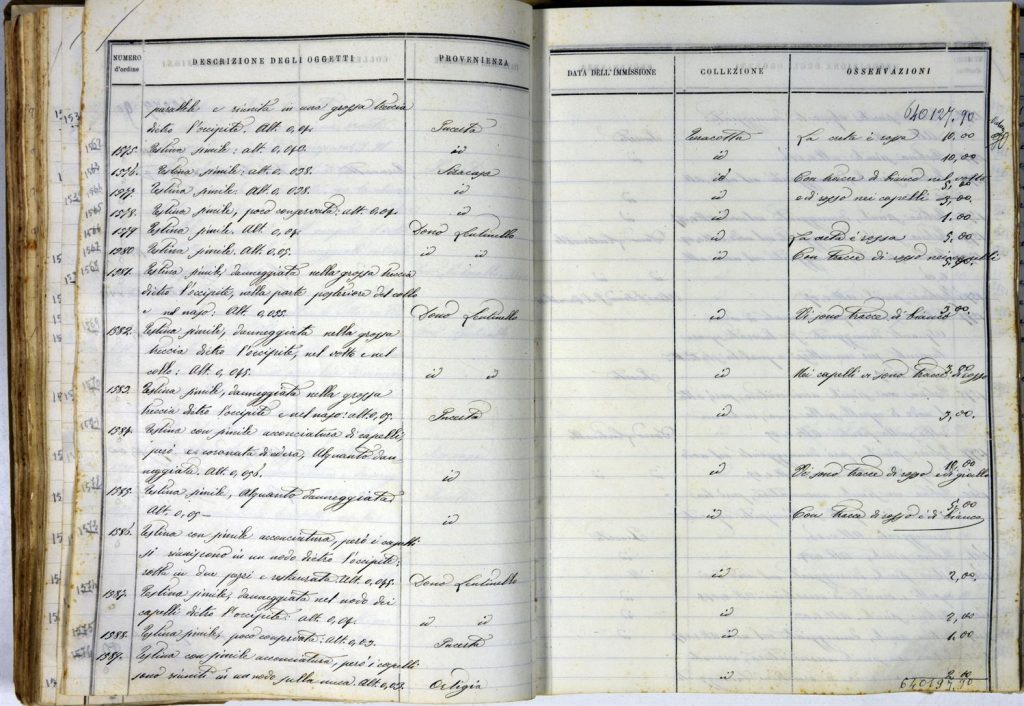 NUMERO d'ordine
DESCRIZIONE DEGLI OGGETTI
PROVENIENZA
parallele e riunita in una grossa treccia
dietro l'occipite. Alt. 0,04. Incerta
1575. Testina simile: alt. 0,040. id
1576. Testina simile: alt. 0,038. Siracusa
1577. Testina simile: Alt. 0,038. id
1578. Testina simile, poco conservata: alt. 0,04. id
1579. Testina simile. Alt. 0,04. Dono Lentinello
1580 Testina simile. Alt. 0,05. id id
1581. Testina simile, danneggiata nella grossa treccia
dietro l'occipite, nella parte posteriore del collo
e nel naso: Alt. 0,055. Dono Lentinello
1582. Testina simile, danneggiata nella grossa
treccia dietro l'occipite, nel volto e nel
collo: Alt. 0,045. id id
1583. Testina simile, danneggiata nella grossa
treccia dietro l'occipite e nel naso: alt. 0,05. Incerta
1584. Testina con simile acconciatura di capelli,
però coronata di edera, Alquanto dan
neggiata. Alt. 0,056. id
1585. Testina simile, Alquanto danneggiata
Alt. 0,05 — id
1586. Testina con simile acconciatura, però i capelli
si riuniscono in un nodo dietro l'occipite:
rotta in due pezzi e restaurata: Alt. 0,045. Dono Lentinello
1587. Testina simile, danneggiata nel nodo dei
capelli dietro l'occipite: Alt. 0,04. id id
1588. Testina simile, poco conservata: Alt. 0,03. Incerta
1589. Testina con simile acconciatura, però i capelli
sono riuniti in un nodo sulla nuca. Alt. 0,03. Ortigia
DATA DELL'IMMISSIONE
COLLEZIONE
OSSERVAZIONI
640127,90
Terracotta La creta è rossa 10,00
id 10,00
id Con tracce di bianco nel volto 5,00
e di rosso nei capelli 3,00
id 1.00
id La creta è rossa 5,00
id Con tracce di rosso nei capelli
id Vi sono tracce di bianco 3,00.
id Nei capelli vi sono tracce di rosso
id 3,00.
10,00
id Vi sono tracce di rosso e di giallo
5,00
id Con tracce di rosso e di bianco
id 2,00,
id 2,00
id 1.00
id 2,00
640197,90